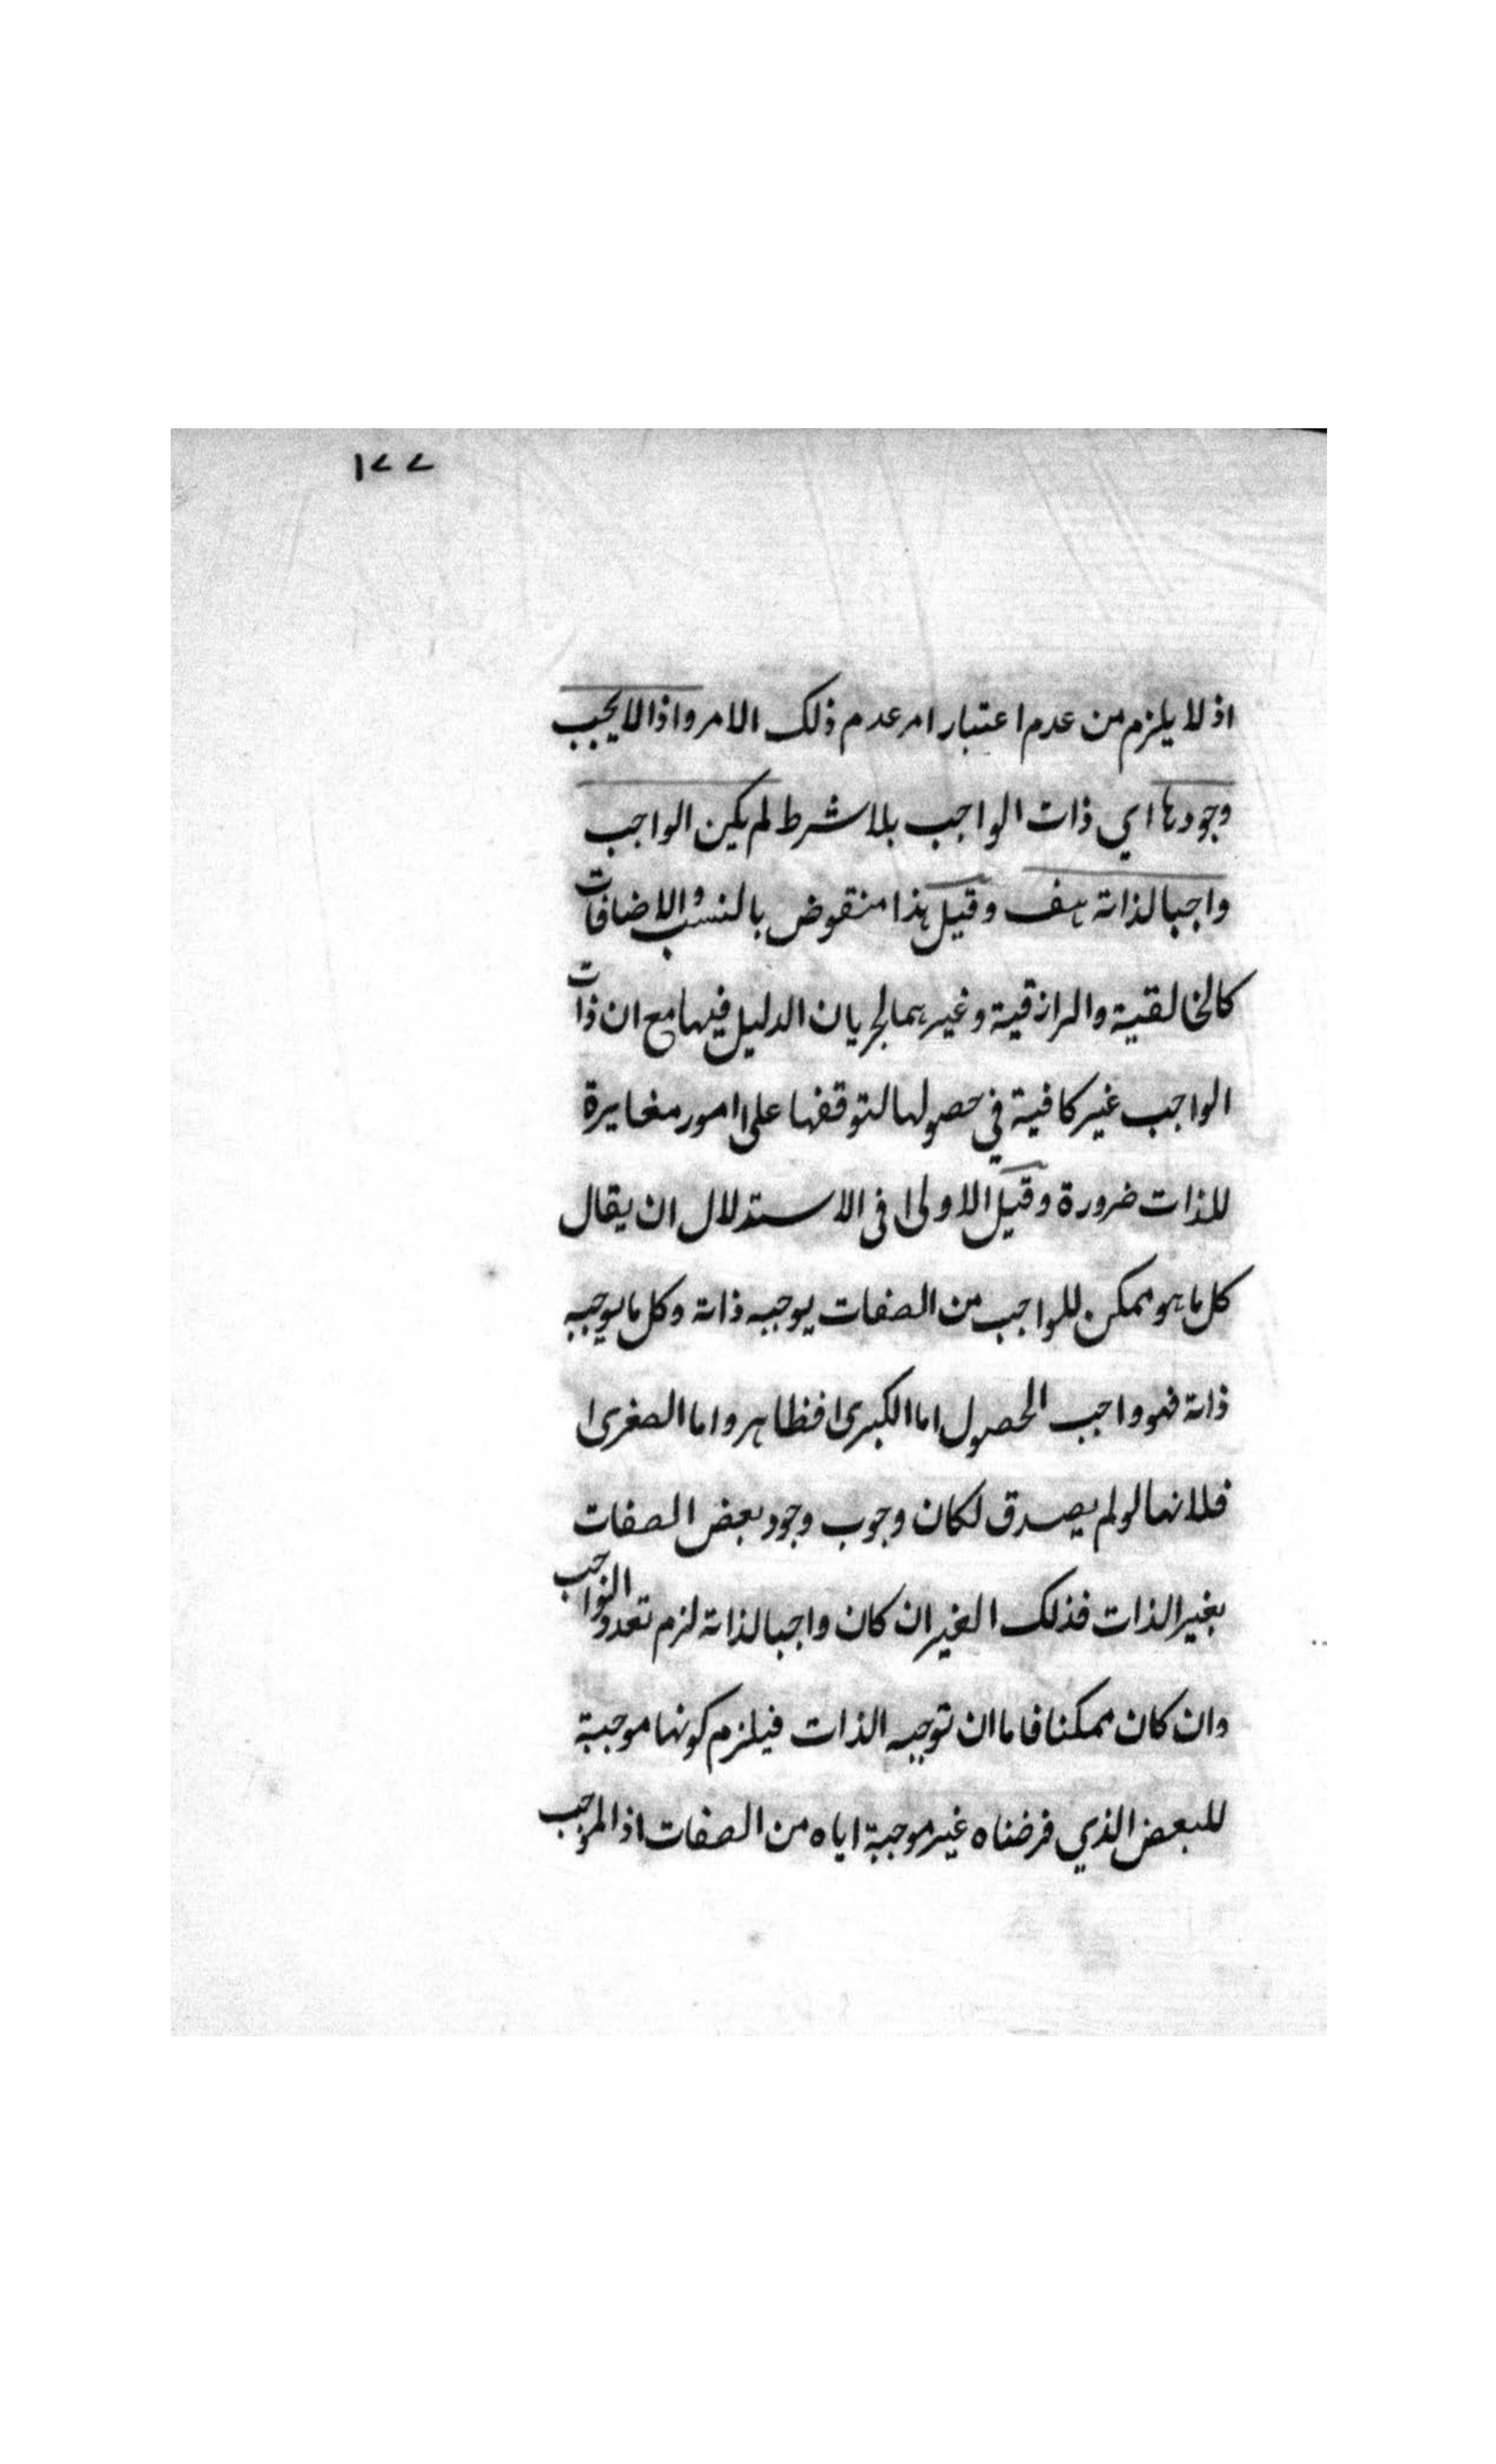 ١٧٧
اذ لا يلزم من عدم اعتبار امر عدم ذلك الامر واذا لا يجب
وجودها اي ذات الواجب بلا شرط لم يكن الواجب
واجبا لذاته هف وقيل هذا منقوض بالنسب والاضافات
كالخالقية والرازقية وغيرهما لجريان الدليل فيها مع ان ذات
الواجب غير كافية في حصولها لتوقفها على امور مغايرة
للذات ضرورة وقيل الاولى في الاستدلال ان يقال
كل ما هو ممكن للواجب من الصفات يوجبه ذاته وكل ما يوجبه
ذاته فهو واجب الحصول اما الكبرى فظاهر واما الصغرى
فلانها لو لم يصدق لكان وجوب وجود بعض الصفات
بغير الذات فذلك الغير ان كان واجبا لذاته لزم تعدد الواجب
وان كان ممكنا فاما ان توجبه الذات فيلزم كونها موجبة
للبعض الذي فرضناه غير موجبة اياه من الصفات اذ الموجب